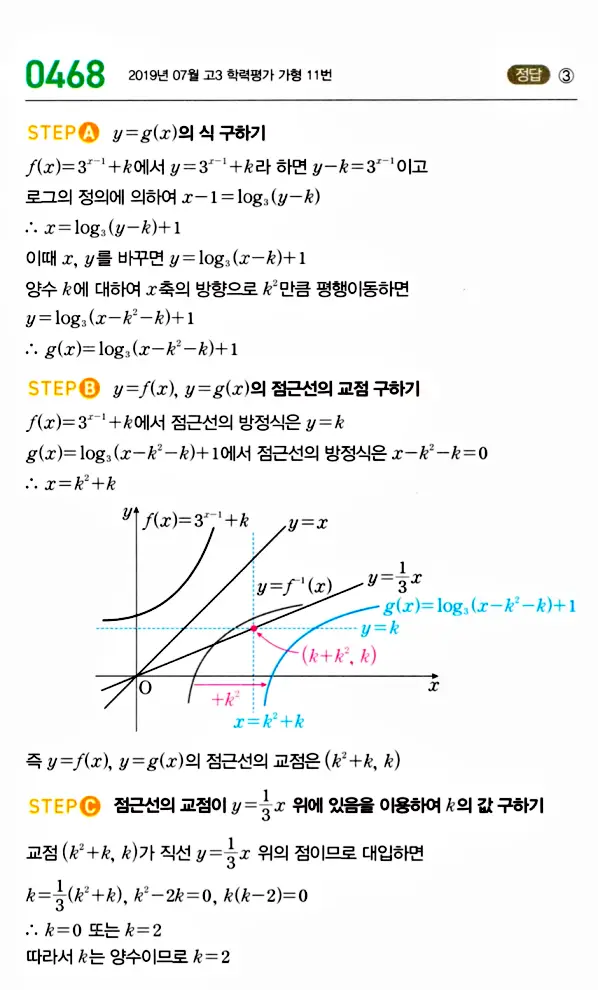 0468 2019년 07월 고3 학력평가 가형 11번 정답 ③
STEP A y=g(x)의 식 구하기
f(x)=3^{x-1}+k에서 y=3^{x-1}+k라 하면 y-k=3^{x-1}이고
로그의 정의에 의하여 x-1=log₃(y-k)
∴ x=log₃(y-k)+1
이때 x, y를 바꾸면 y=log₃(x-k)+1
양수 k에 대하여 x축의 방향으로 k²만큼 평행이동하면
y=log₃(x-k²-k)+1
∴ g(x)=log₃(x-k²-k)+1
STEP B y=f(x), y=g(x)의 점근선의 교점 구하기
f(x)=3^{x-1}+k에서 점근선의 방정식은 y=k
g(x)=log₃(x-k²-k)+1에서 점근선의 방정식은 x-k²-k=0
∴ x=k²+k
y
f(x)=3^{x-1}+k
y=x
y=f⁻¹(x)
y=\frac{1}{3}x
g(x)=log₃(x-k²-k)+1
y=k
(k+k², k)
O
x
+k²
x=k²+k
즉 y=f(x), y=g(x)의 점근선의 교점은 (k²+k, k)
STEP C 점근선의 교점이 y=\frac{1}{3}x 위에 있음을 이용하여 k의 값 구하기
교점 (k²+k, k)가 직선 y=\frac{1}{3}x 위의 점이므로 대입하면
k=\frac{1}{3}(k²+k), k²-2k=0, k(k-2)=0
∴ k=0 또는 k=2
따라서 k는 양수이므로 k=2